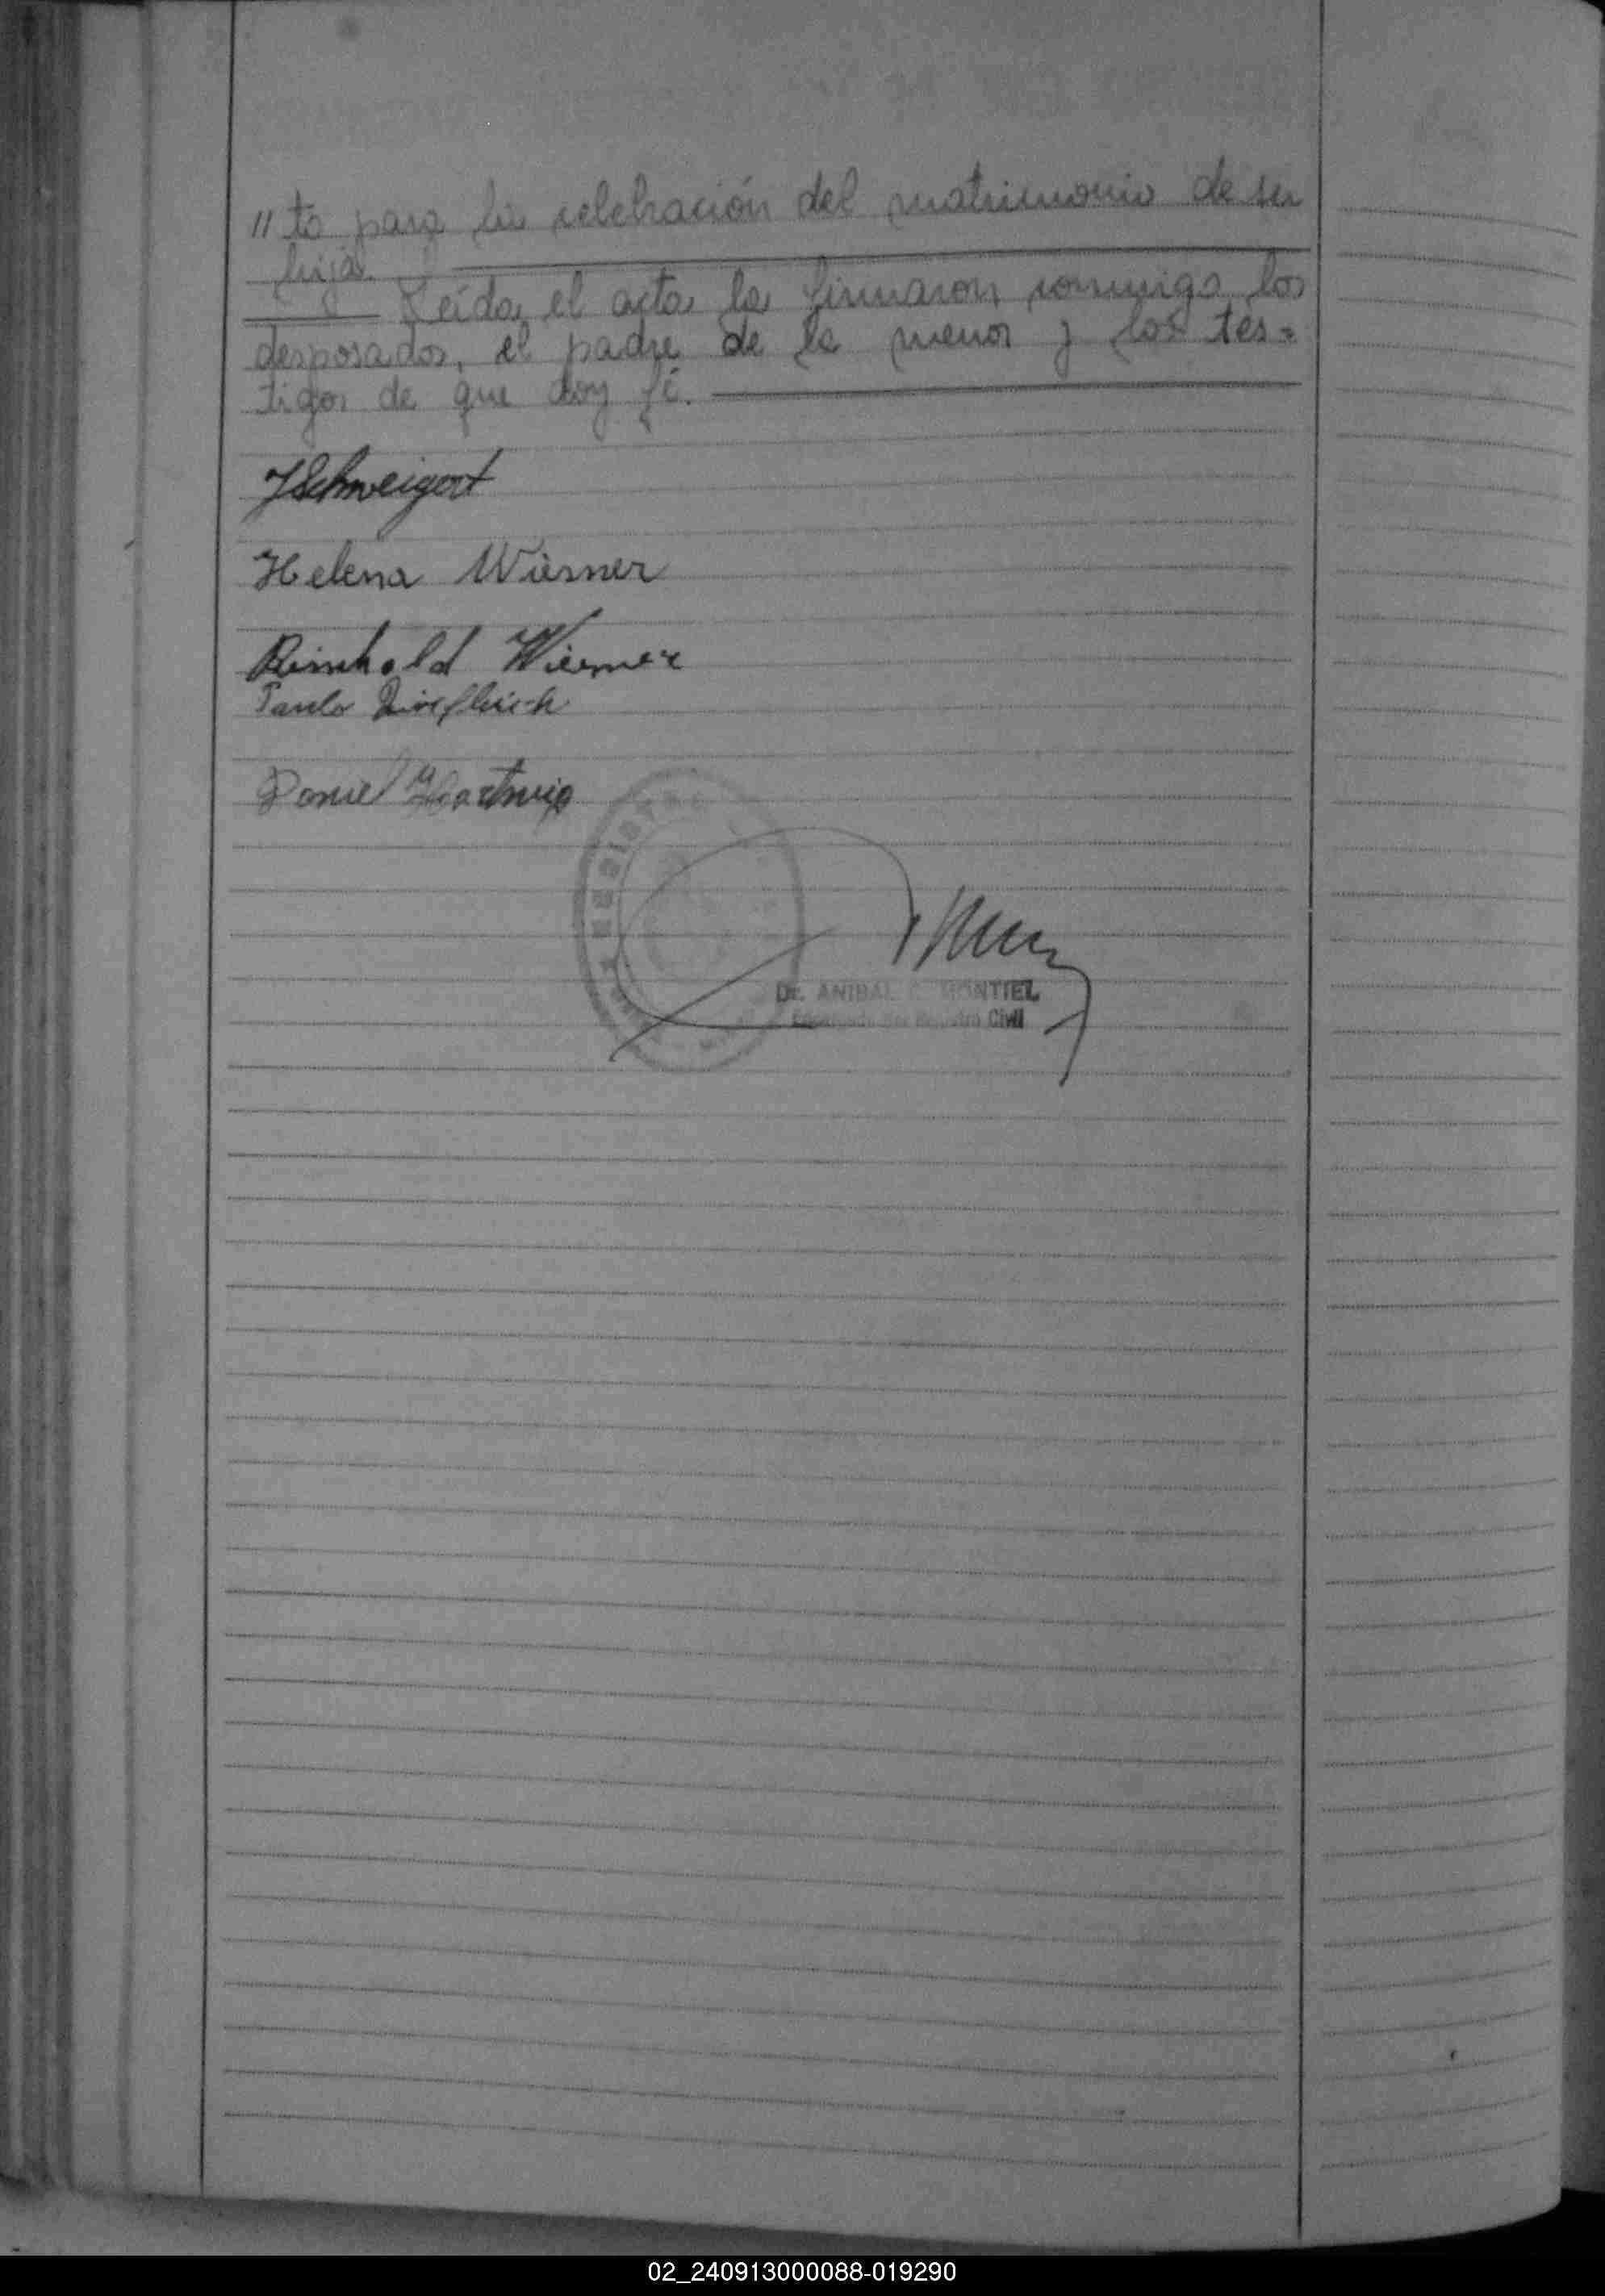 "to para la celebración del matrimonio de su
hija.
Leída el acta la firmaron conmigo los
desposados, el padre de la menor y los tes=
tigos de que doy fé.
JSchweigert
Helena Wiesner
Reinhold Wiesner
Paulo
Daniel Hartwig
REGISTRO
Dr. ANIBAL MONTIEL
Encargado del Registro Civil
02_240913000088-019290